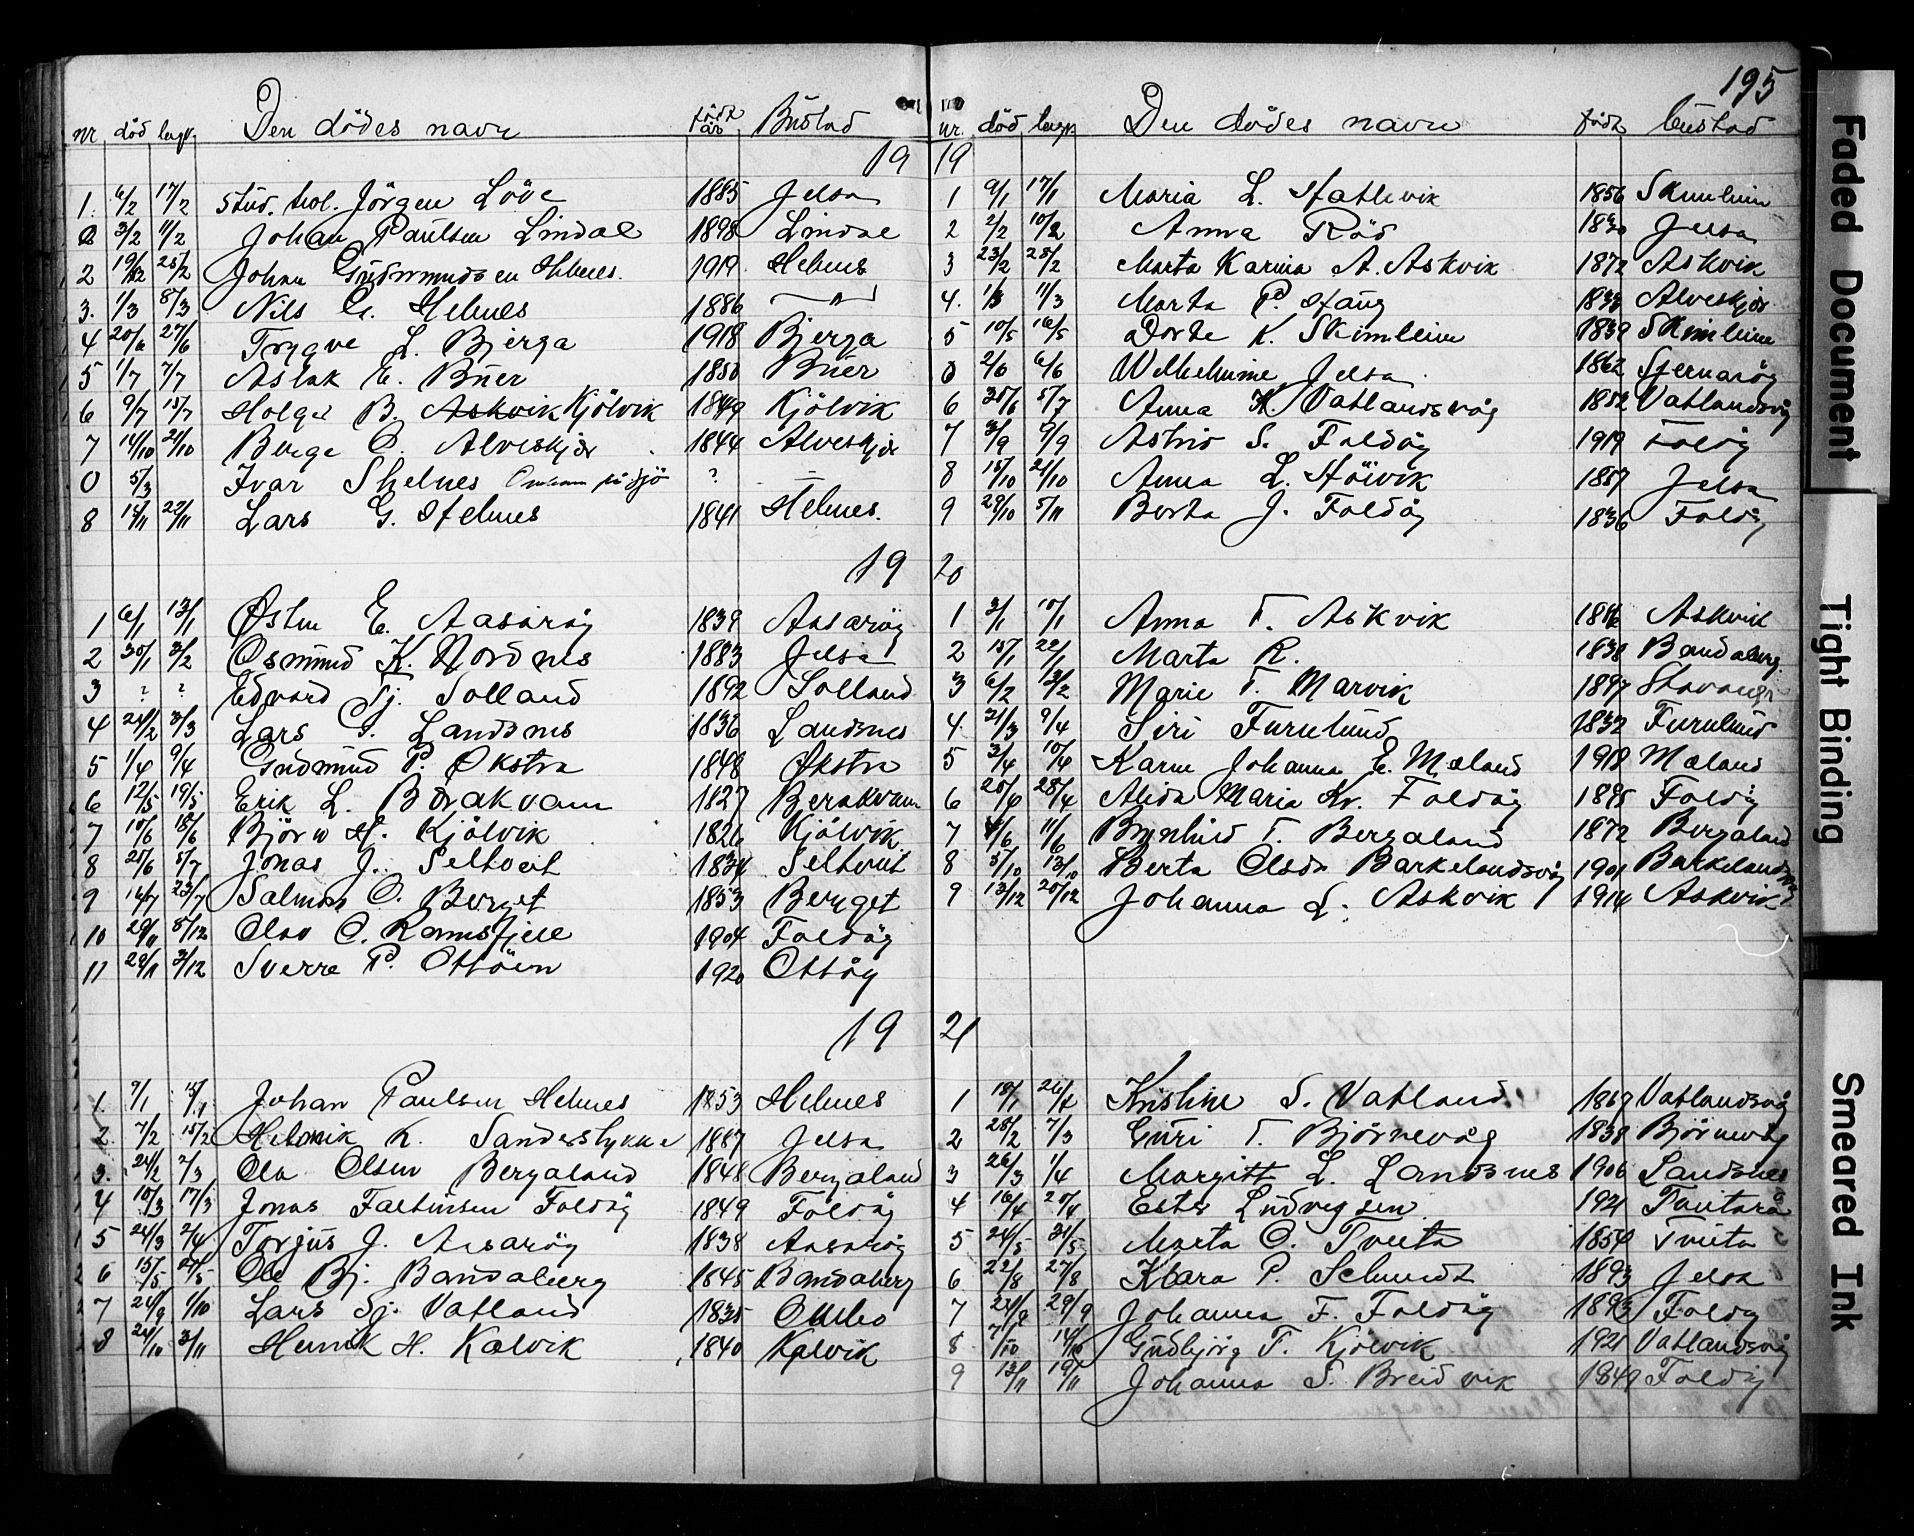 195
nr. död begr. Den dödes navn född år Bustad
19
1. 6/2 17/2 stud. teol. Jörgen Löve 1885 Jelsa
0 3/2 11/2 Johan Paulsen Lindal 1898 Lindal
2 25/2 Johan Gudmundsen Helmes. 1919 Helmes
3. 1/3 8/3 Nils G. Helmes 1886 — " —
4 20/6 27/6 Trygve L. Bjerga 1918 Bjerga
5 1/7 7/7 Aslak E. Buer 1850 Buer
6 9/7 15/7 Holger B. Askvik Kjölvik 1849 Kjölvik
7 14/10 21/10 Berge O. Alveskjer 1844 Alveskjer
0 5/3 Ivar Skelnes Omkom på sjö ?
8 14/11 22/11 Lars G. Helmes 1841 Helmes.
19
1 6/1 13/1 Østen E. Aasarög 1839 Aasarög
2 30/1 3/2 Osmund K. Nordnes 1883 Jelsa
3 ? ? Edvard Tj. Solland 1892 Solland
4 24/2 3/3 Lars G. Landsnes 1836 Landsnes
5 1/4 9/4 Gudmund P. Økstra 1848 Økstra
6 12/5 19/5 Erik L. Borakvam 1827 Berakvam
7 10/6 18/6 Björn H. Kjölvik 1826 Kjölvik
8 25/6 5/7 Jonas J. Seltveit 1834 Seltveit
9 16/7 23/7 Salmon O. Berget 1853 Berget
10 29/11 8/12 Olav O. Ramsfjell 1904 Foldög
11 29/11 3/12 Sverre P. Ottöen 1920 Ottög
19
1. 9/1 15/1 Johan Paulsen Helmes 1853 Helmes
2. 7/2 15/2 Helmik K. Sanderstykke 1887 Jelsa
3. 24/2 2/3 Ola Olsen Bergaland 1848 Bergaland
4 10/3 17/3 Jonas Faltinsen Foldög 1849 Foldög
5 24/3 2/4 Torjus J. Aasarög 1838 Aasarög
6 15/5 21/5 Ole Bj. Bandaberg 1845 Bandaberg
7 24/9 1/10 Lars Sj. Vatland 1835 Ombo
8 24/10 3/11 Henrik H. Kalvik 1840 Kalvik
nr. död begr. Den dödes navn född bustad
19
1 9/1 17/1 Maria L. Hatlevik 1856 Skimleim
2 2/2 10/2 Anna Röd 1830 Jelsa
3 23/2 28/2 Marta Karina A. Askvik 1872 Askvik
4. 1/3 11/3 Marta P. Haug 1833 Alveskjer
5 10/5 16/5 Dorte K. Skimleim 1839 Skimleim
0 2/6 6/6 Wilhelmine Jelsa 1862 Sjernaröy
6 30/6 5/7 Anna K. Vatlandsvåg 1852 Vatlandsvåg
7 3/9 9/9 Astrid S. Foldög 1919 Foldög
8 15/10 21/10 Anna L. Höivik 1857 Jelsa
9 29/10 5/11 Berta J. Foldög 1836 Foldög
20
1 3/1 10/1 Anna T. Askvik Askvik
2 15/1 22/1 Marta R. 1838 Bandaberg
3 6/2 13/2 Marie T. Marvik 1897 Stavanger
4. 31/3 9/4 Siri Furulund 1832 Furulund
5 3/4 10/4 Karen Johanna E. Mæland 1918 Mæland
6 20/4 28/4 Alida Maria Kr. Foldög 1895 Foldög
7 4/6 11/6 Brynhild T. Bergaland 1872 Bergaland
8 5/10 13/10 Berta Olsda Barkelandsvåg 1901 Barkelandsvåg
9 13/12 20/12 Johanna L. Askvik 1914 Askvik
21
1 18/1 Kristine S. Vatland 1867 Vatlandsvåg
2 28/2 7/3 Guri T. Björnevåg 1838 Björnevåg
3 26/3 1/4 Margitt L. Landsnes 1906 Landsnes
4 16/4 20/4 Ester Ludvigsen 1921 Tautarå
5 24/5 31/5 Marta O. Tveita 1854 Tveita
6 22/8 27/8 Klara P. Schmidt 1893 Jelsa
7 29/9 Johanna F. Foldög 1893 Foldög
8 7/10 14/10 Gudbjörg T. Kjölvik 1921 Vatlandsvåg
9 13/11 19/11 Johanna S. Breidvik 1849 Foldög
Faded Document
Tight Binding
Smeared Ink